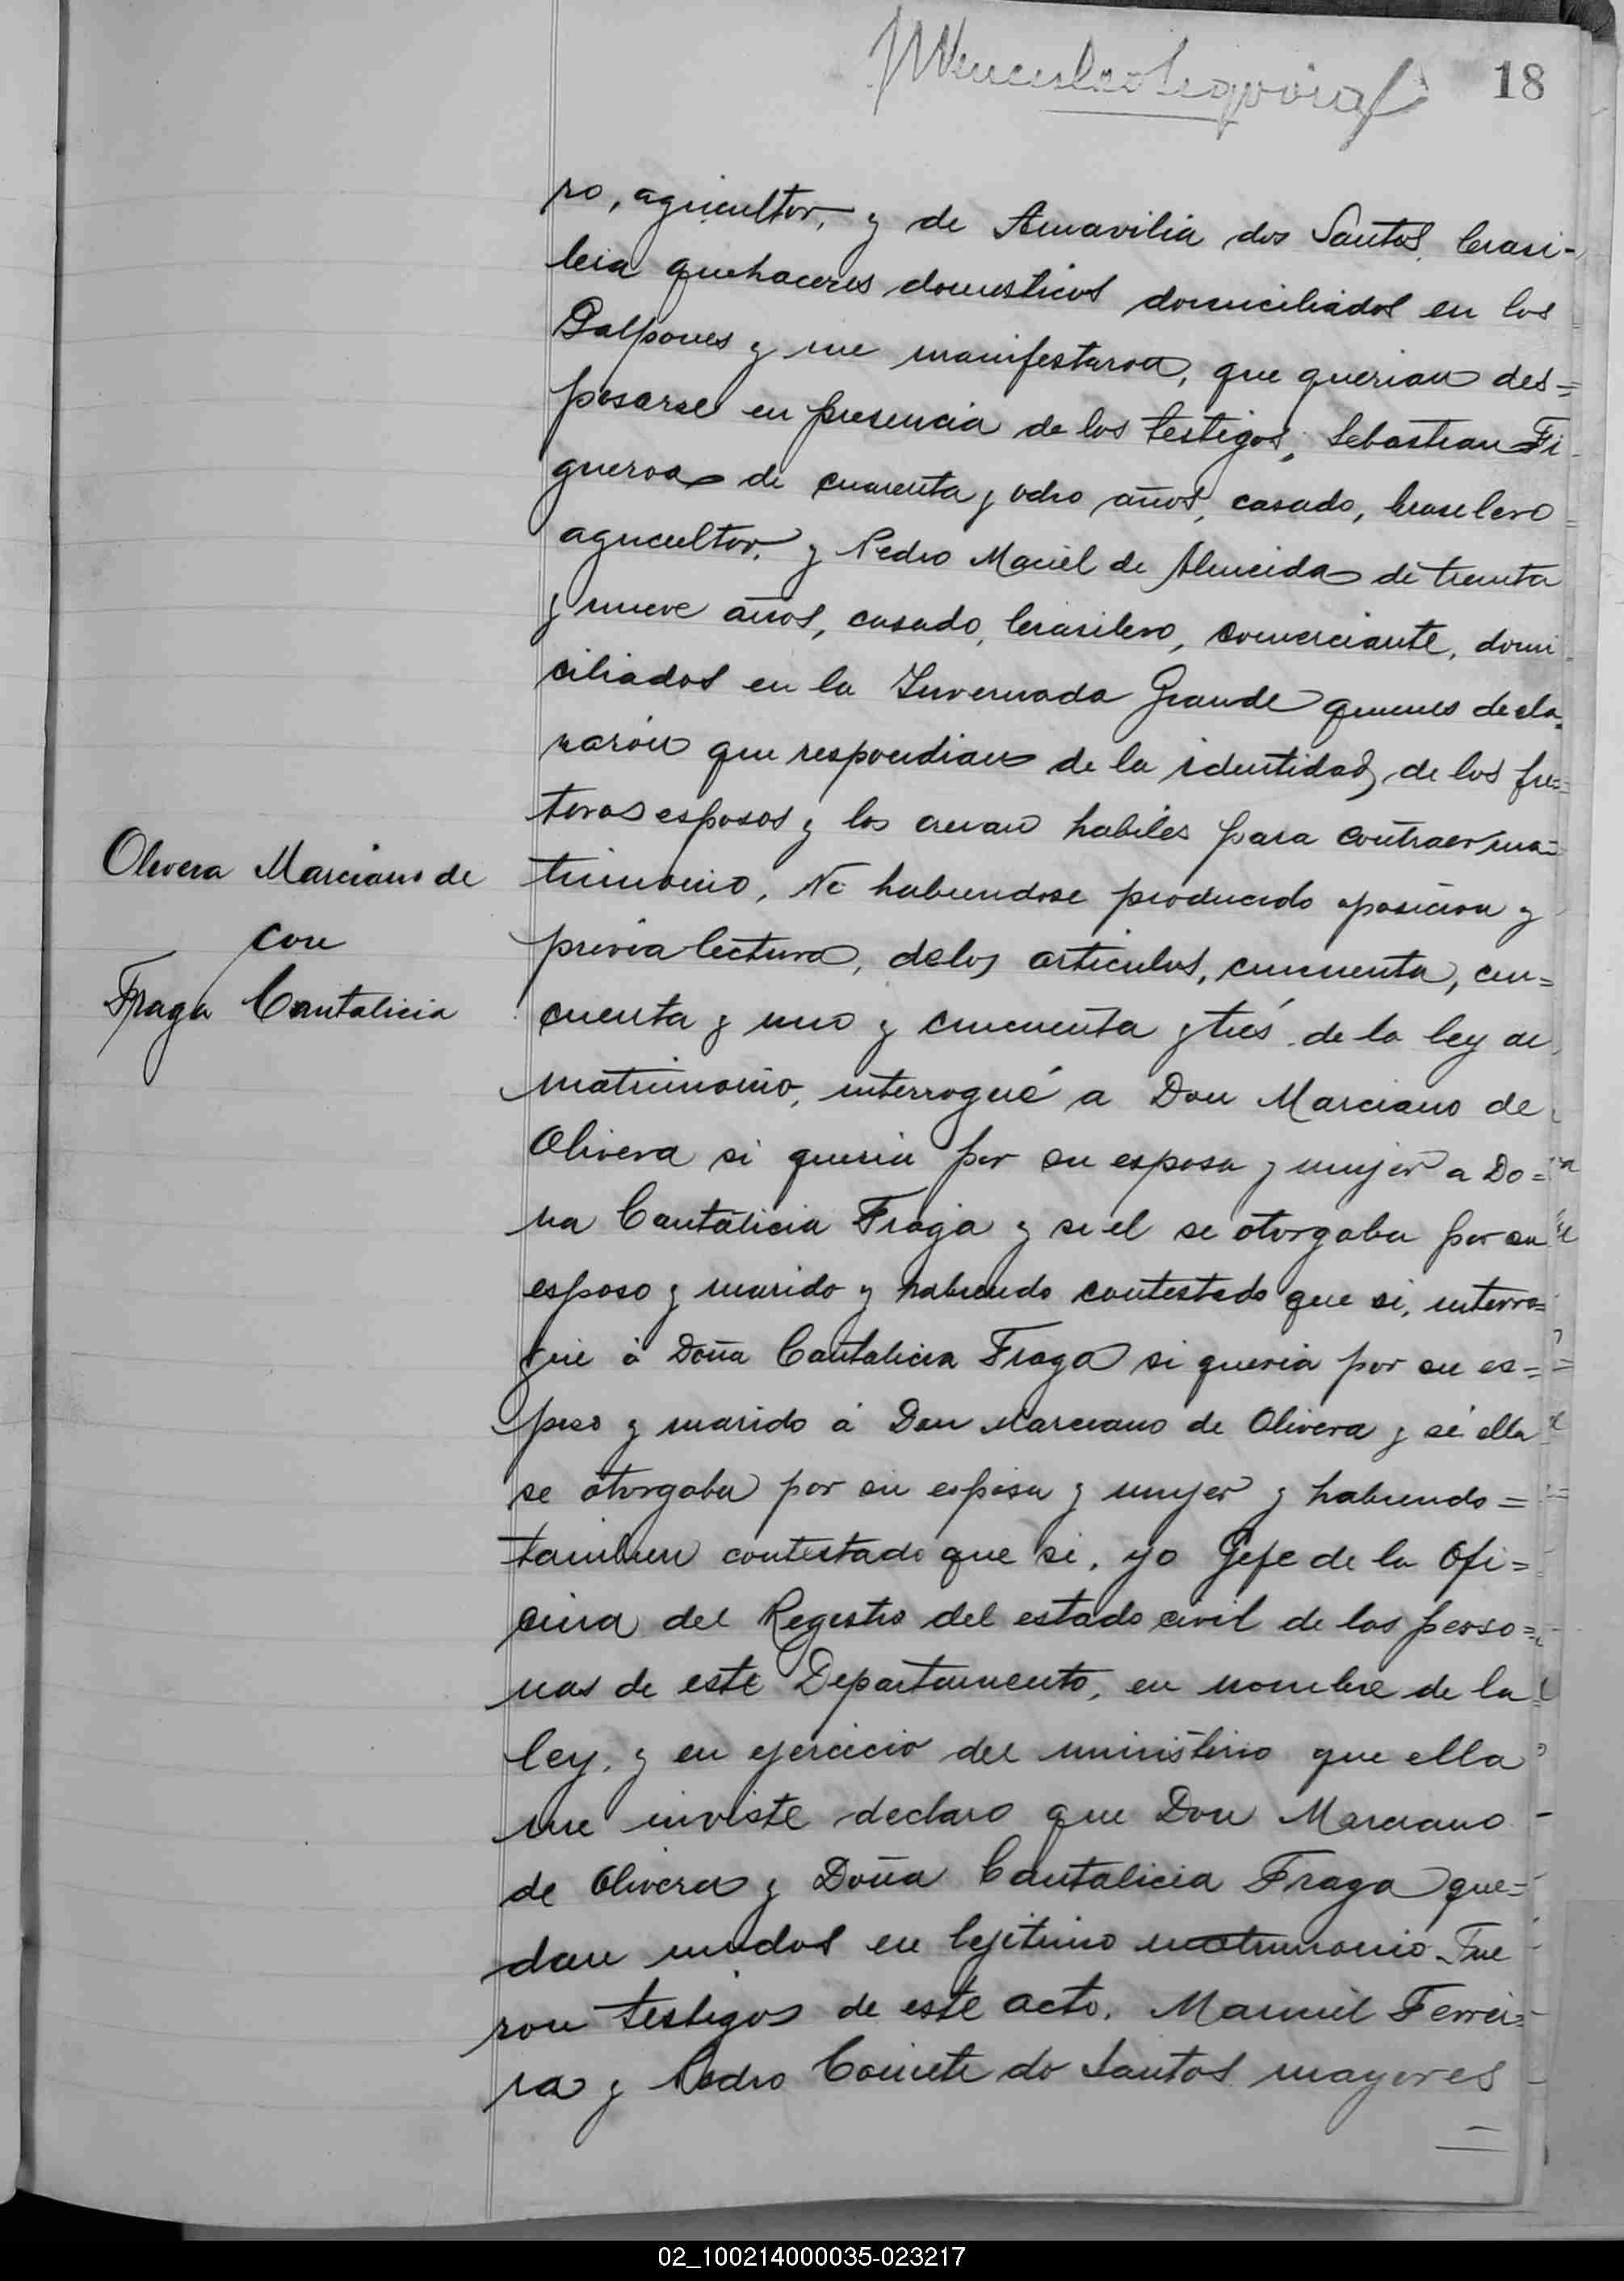 18
ro, agricultor, y de Amavilia dos Santos, brasi-
leia quehaceres domesticos domiciliados en los
Galpones y me manifestaron, que querian des=
posarse en presencia de los testigos, Sebastian Fi
gueroa de cuarenta y ocho años, casado, brasilero
agricultor, y Pedro Maciel de Almeida de treinta
y nueve años, casado, brasilero, comerciante, domi
ciliados en la Invernada Grande quienes decla=
raron que respondian de la identidad, de los fu=
turos esposos y los creian habiles para contraer ma=
trimonio, No habiendose producido oposicion y
previa lectura, delos articulos, cincuenta, cin=
cuenta y uno y cincuenta y tres de la ley de
matrimonio, interrogué a Don Marciano de
Olivera si queria por su esposa y mujer a Do=
na Cantalicia Fraga y si el se otorgaba por su
esposo y marido y habiendo contestado que si, interro=
gue á Doña Cantalicia Fraga si queria por su es=
poso y marido á Don Marciano de Olivera y si ella
se otorgaba por su esposa y mujer y habiendo=
tambien contestado que si, yo Gefe de la Ofi=
cina del Registro del estado civil de las perso=
nas de este Departamento, en nombre de la
ley, y en ejercicio del ministerio que ella
me inviste declaro que Don Marciano
de Olivera y Doña Cantalicia Fraga que=
dan unidos en lejitimo matrimonio. Fue
ron testigos de este acto, Manuel Ferrei=
ra y Pedro do Santos mayores
Olivera Marciano de
con
Fraga Cantalicia
02_100214000035-023217